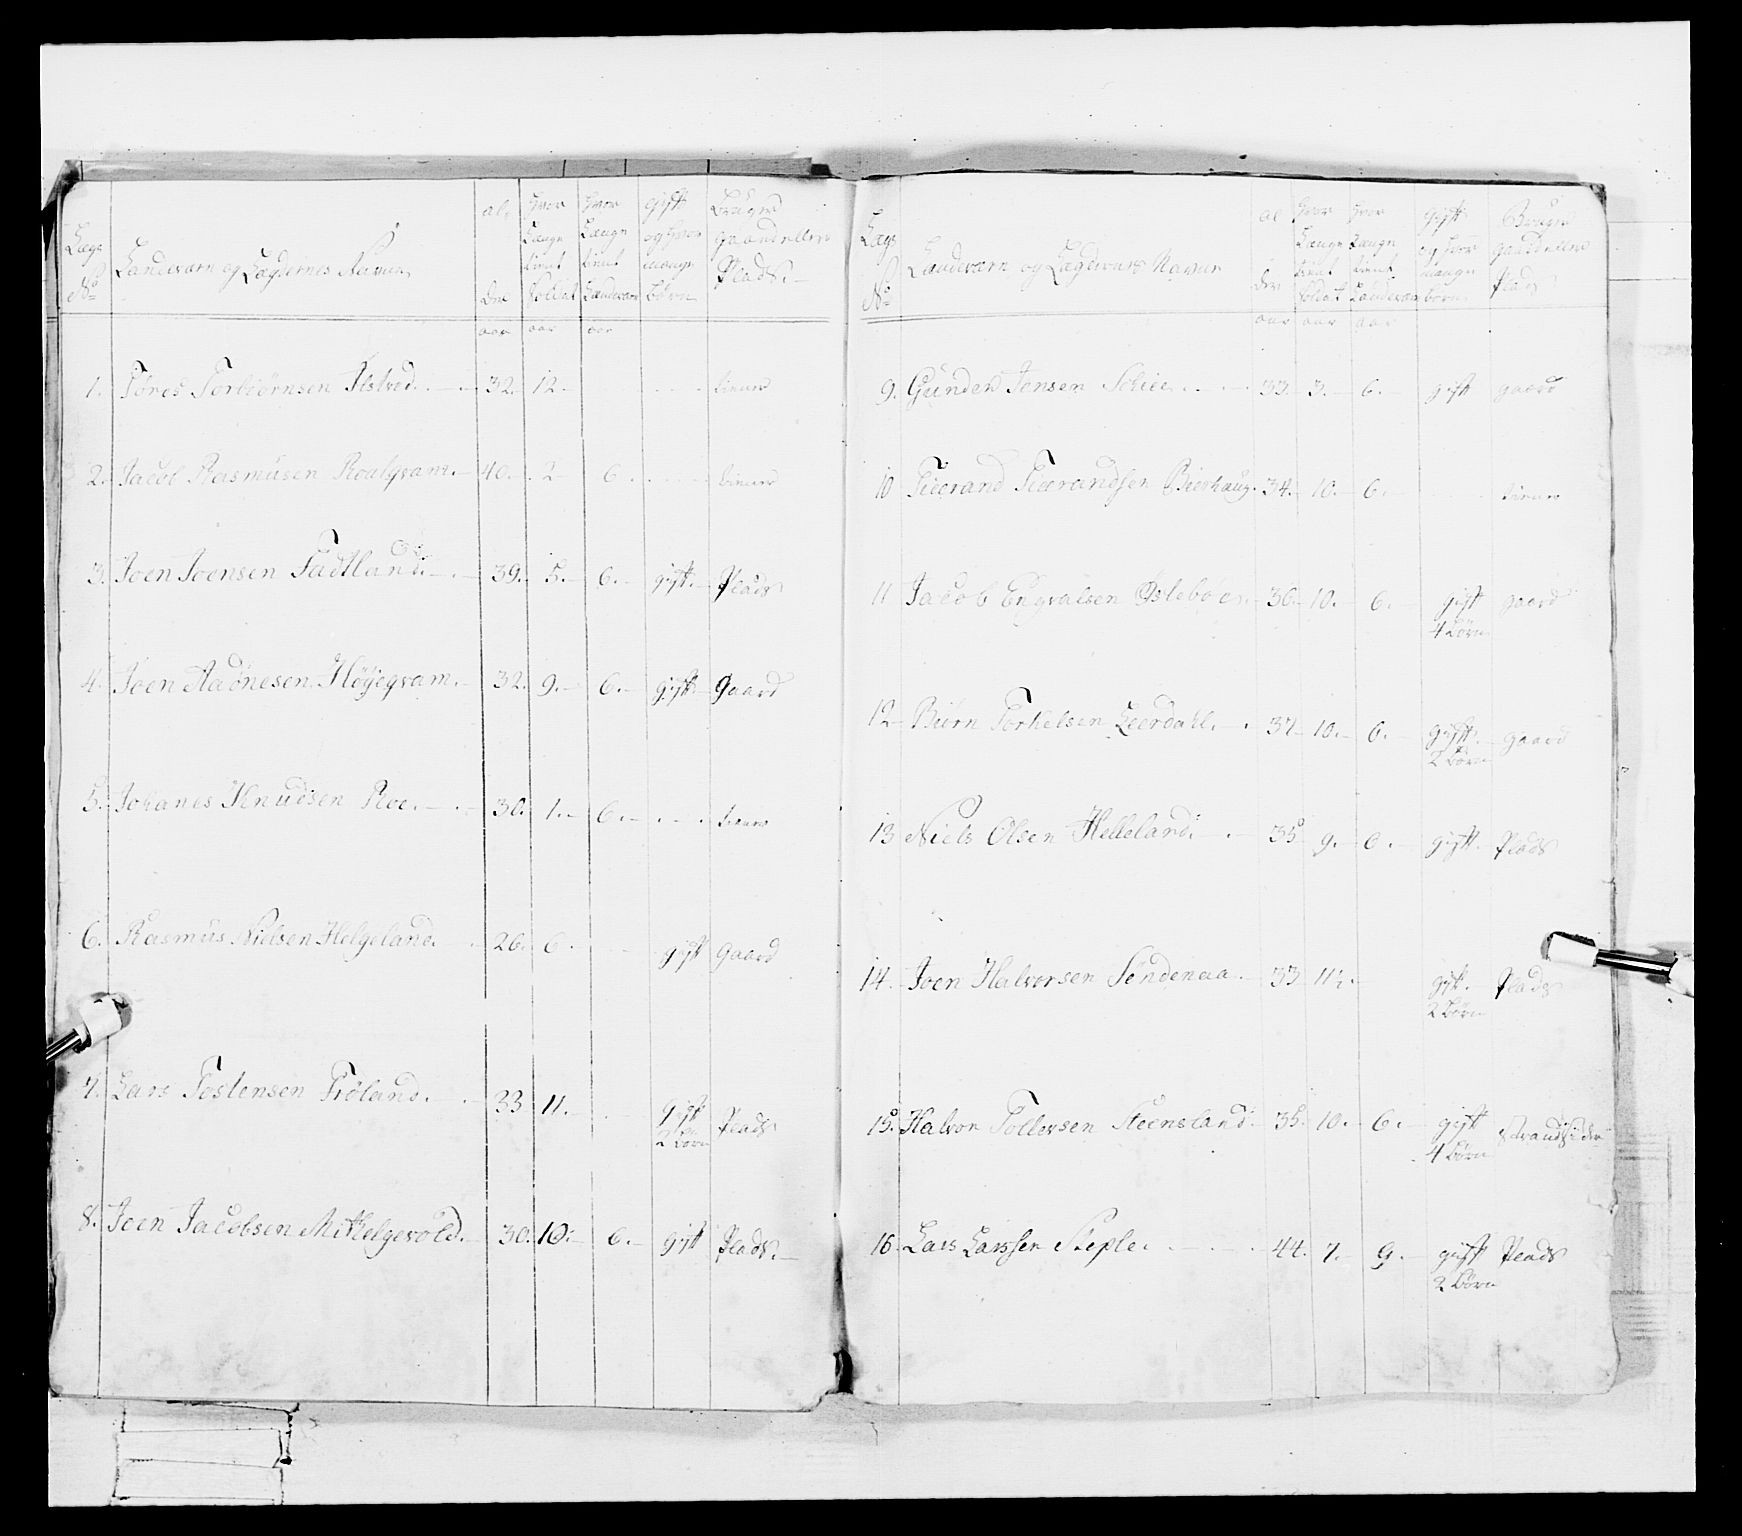 Lægs No Landeværn og Lægdernes Navne alder hvor Længe tient Soldat hvor Længe tient Landeværn gift og hvor mange børn Bruger gaard eller Plads
aar aar aar
1. Tóres Torbiórnsen 32. 12 tiener
2. Jacob Rasmusen 40. 2 6. tiener
3. Joen Joensen Tadtland. 39. 5. 6. gift. Plads
4. Joen Aadnesen Høyegvam. 32. 9. 6. gift Gaard
5. Johanes Knudsen Roe. 30. 1. 6. tiener
6. Rasmus Nielsen Helgeland. 26. 6. gift Gaard
7. Lars Tostensen Frøland. 33 11. gift 2 børn Plads
8. Joen Jacobsen 30. 10. 6. gift Plads.
Lægs No Landeværn og Lægdernes Navne alder hvor Længe tient Soldat hvor Længe tient Landeværn gift og hvor mange børn Bruger gaard eller Plads
aar aar aar
9. Gunder Jensen 33. 3. 6. gift gaard
10 34. 10. 6. tiener
11 Jacob Engvalsen 36. 10. 6. gift gaard
4 børn
12 Biørn Torkelsen Leerdahl. 37 10. 6. gift. gaard
2 børn
13 Niels Olsen Helleland. 35 9. 6. gift. Plads
14. Joen Halvorsen Søndenaa. 33 11½. gift. Plads
2 børn
15. Halvor Tollevsen Steensland 35. 10. 6. gift Strandsidder
4 børn
16. Lars Larssen Steple. 44. 7. 9. gift Plads
2 børn